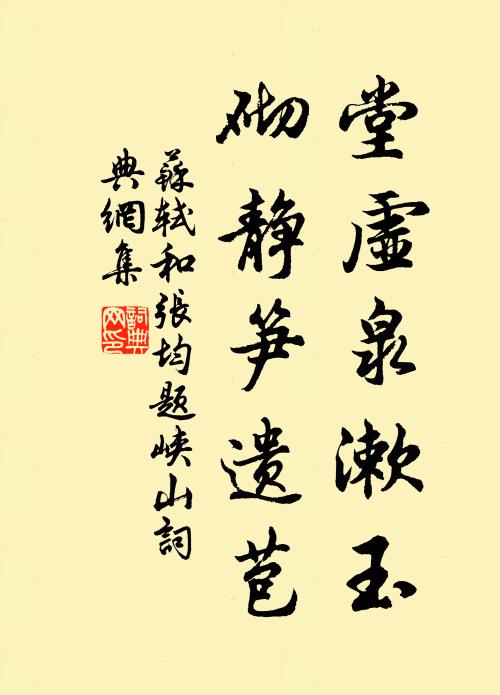 堂虛泉漱玉
砌静笋遗苞
蘇軾和張均題峽山詞
典網集
詞典
网印